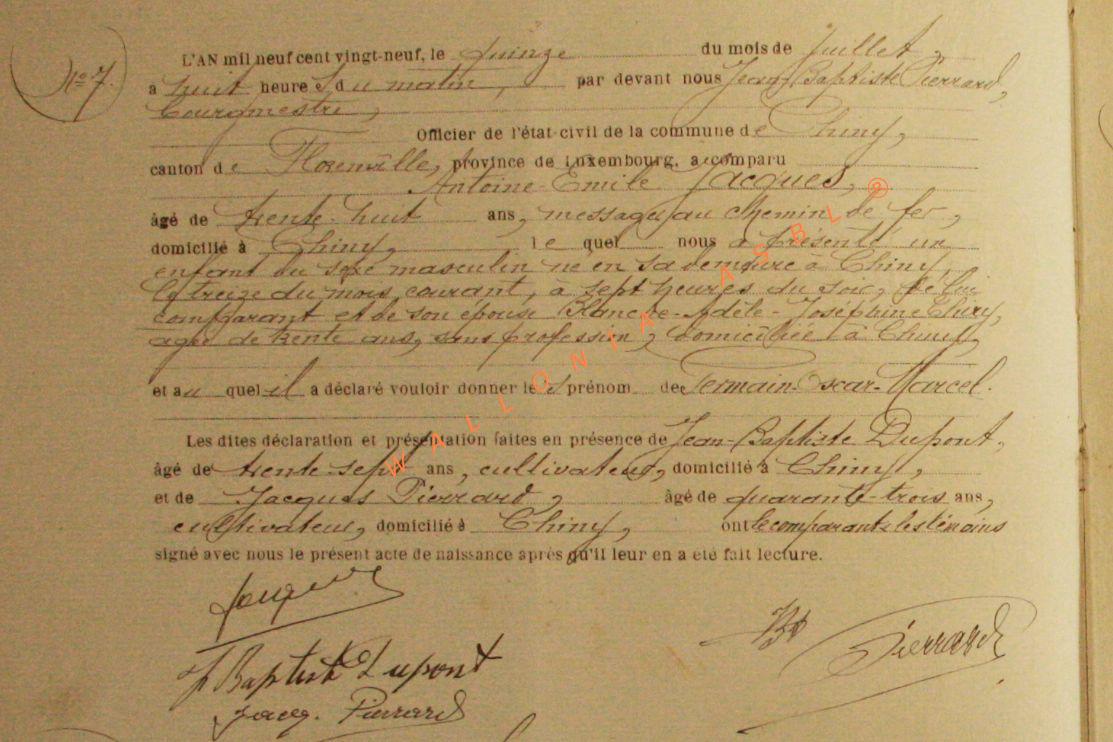 N° 7.
L'AN mil neuf cent vingt-neuf, le quinze du mois de Juillet,
a huit heures du matin, par devant nous Jean-Baptiste Pierrard,
bourgmestre,
Officier de l'état civil de la commune de Chiny,
canton de Florenville, province de Luxembourg, a comparu
Antoine-Emile Jacques,
âgé de trente-huit ans, messager au chemin de fer,
domicilié à Chiny, le quel nous a présenté un
enfant du sexe masculin né en sa demeure à Chiny,
le treize du mois courant, à sept heures du soir, de lui
comparant et de son épouse Blanche-Adèle-Joséphine
agée de trente ans, sans profession, domiciliée à Chiny,
et au quel il a déclaré vouloir donner les prénom de Germain-Oscar-Marcel.
Les dites déclaration et présentation faites en présence de Jean-Baptiste Dupont,
âgé de trente-sept ans, cultivateur, domicilié à Chiny,
et de Jacques Pierrard, âgé de quarante-trois ans,
cultivateur, domicilié à Chiny, ont le comparant & les témoins
signé avec nous le présent acte de naissance après qu'il leur en a été fait lecture.
Jacques
J Baptiste Dupont
JB Pierrard
Jacq. Pierrard
WALLONIA ASBL ®